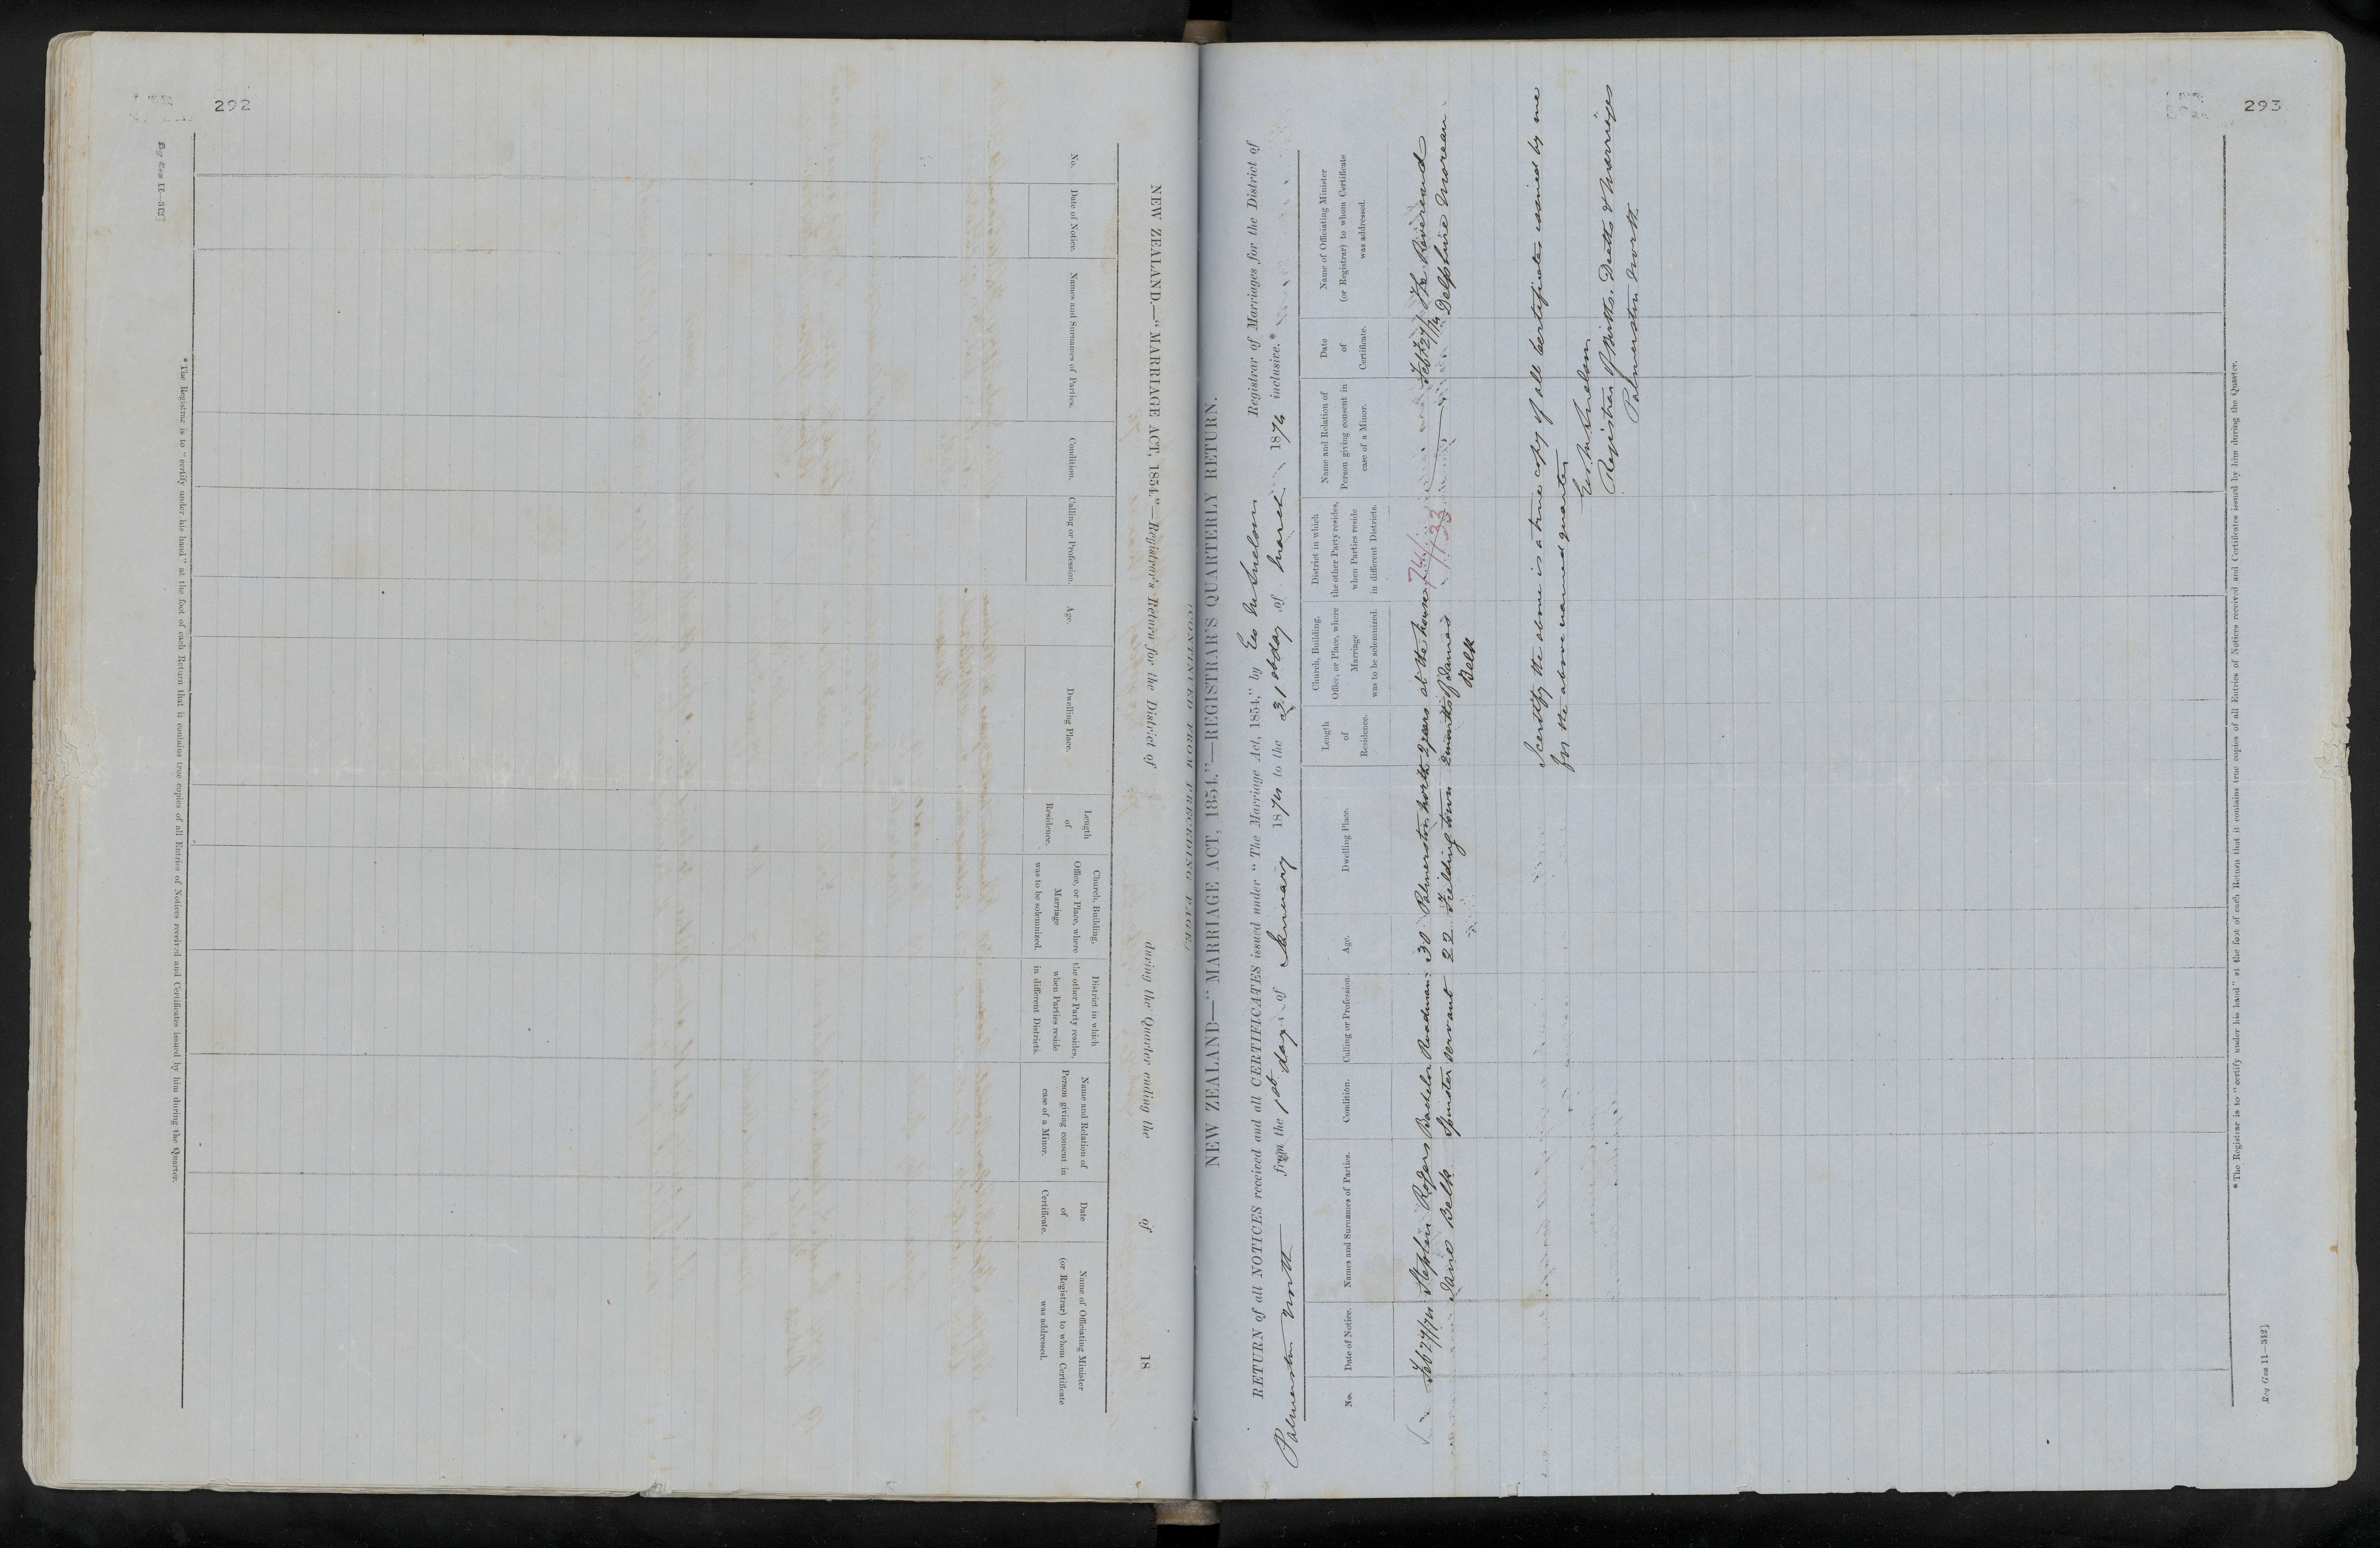 292
[Reg Gen 11—312]
NEW ZEALAND.—"MARRIAGE ACT, 1854."—Registrar's Return for the District of during the Quarter ending the of 18
No.
Date of Notice.
Names and Surnames of Parties.
Condition.
Calling or Profession.
Age.
Dwelling Place.
Length
of
Residence.
Church, Building,
Office, or Place, where
Marriage
was to be solemnized.
District in which
the other Party resides,
when Parties reside
in different Districts.
Name and Relation of
Person giving consent in
case of a Minor.
Date
of
Certificate.
Name of Officiating Minister
(or Registrar) to whom Certificate
was addressed.
* The Registrar is to "certify under his hand" at the foot of each Return that it contains true copies of all Entries of Notices received and Certificates issued by him during the Quarter.
293
(CONTINUED FROM PRECEDING PAGE.)
NEW ZEALAND—"MARRIAGE ACT, 1854."—REGISTRAR'S QUARTERLY RETURN.
RETURN of all NOTICES received and all CERTIFICATES issued under "The Marriage Act, 1854," by Geo Registrar of Marriages for the District of
Palmerston North from the 1st day of January 1874 to the 31st day of March 1874 inclusive.*
No.
Date of Notice.
Names and Surnames of Parties.
Condition.
Calling or Profession.
Age.
Dwelling Place.
Length
of
Residence.
Church, Building,
Office, or Place, where
Marriage
was to be solemnized.
District in which
the other Party resides,
when Parties reside
in different Districts.
Name and Relation of
Person giving consent in
case of a Minor.
Date
of
Certificate.
Name of Officiating Minister
(or Registrar) to whom Certificate
was addressed.
Feb 27/74 Stephen Rogers Bachelor Roadman 30 Palmerston North 2 years at the house 74/ Feb 27/74 The Reverend
Belk Spinster Servant 22 Feilding town 2 months of Belk 133 Delphine Moreau
I certify the above is a true copy of all Certificates issued by me
for the above named quarter
Geo
Registrar of Births, Deaths & Marriages
Palmerston North
* The Registrar is to "certify under his hand" at the foot of each Return that it contains true copies of all Entries of Notices received and Certificates issued by him during the Quarter.
Reg Gen 11—312]